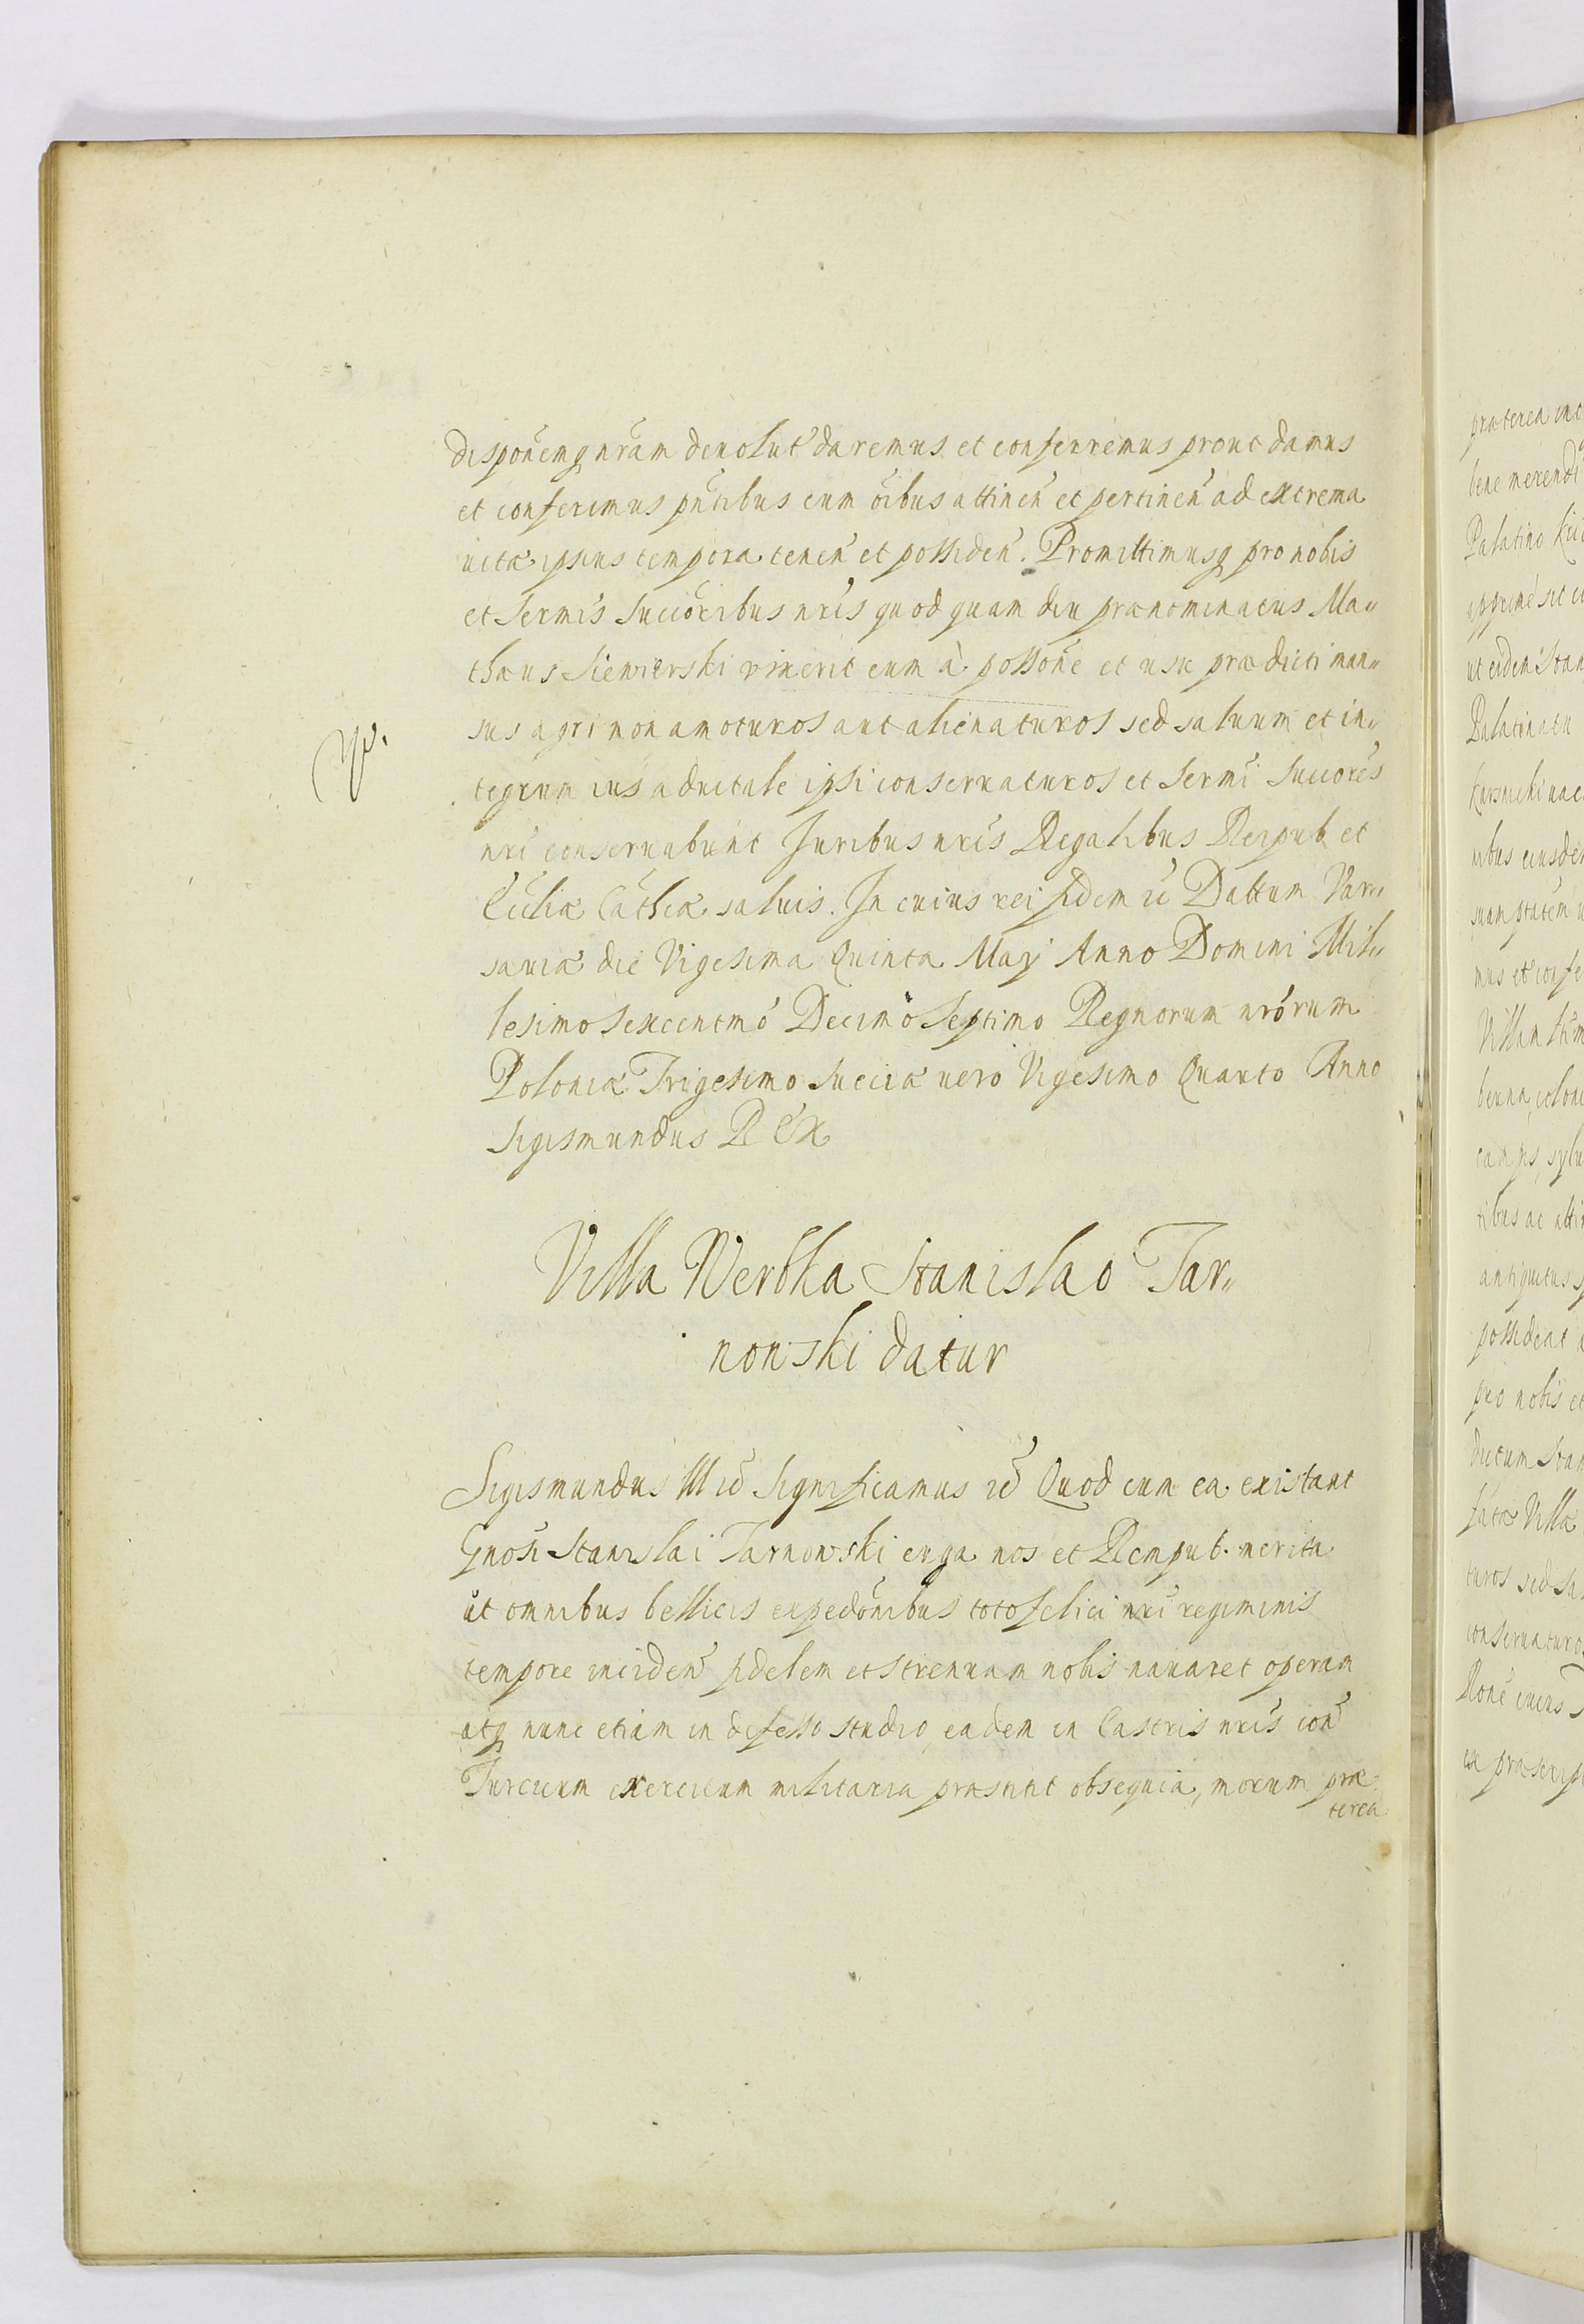 disponemq nram devolut daremus et conferremus prout damus
et conferimus pntibus cum oibus attinen et pertinen ad extrema
vitæ ipsius tempora tenen et possiden. Promittimusq pro nobis
et Sermis Succoribus nris quod quam diu prænominatus Ma„
thæus Siewierski vixerit eum à possone et usu prædicti man„
sus agri non amoturos aut alienaturos sed salvum et in„
W.
tegrum ius advitale ipsi conservaturos et Sermi Succores
nri conservabunt Juribus nris Regalibus Reipub et
Ecclia Cathca salvis. In cuius rei fidem ic Dattum Var„
saviæ die Vigesima Quinta Maij Anno Domini Mil„
lesimo Sexcentmo Decimo Septimo Regnorum nrorum
Poloniæ Trigesimo Sueciæ vero Vigesimo Quarto Anno
Sigismundus REX
Villa Werbka Stanislao Tar„
nowski datur
Sigismundus III ic Significamus ic Quod cum ea existant
Gnosi Stanislai Tarnowski erga nos et Rempub. merita
ut omnibus bellicis expedonibus toto felici nri regiminis
tempore inciden fidelem et strenuam nobis navaret operam
atq nunc etiam indefesso studio, eadem in Castris nris con
Turcicum exercitum militaria præstitit obsequia, morum præ
terea
præterea
bene merendi
Palatino
Palatinatu
possideat
pro nobis et
dictum Stan
Villæ
turos sed sa
conservaturos